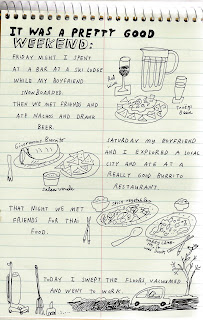 IT WAS A PRETTY GOOD
WEEKEND:
FRIDAY NIGHT I SPENT
AT A BAR AT A SKI LODGE
WHILE MY BOYFRIEND
SNOWBOARDED.
THEN WE MET FRIENDS AND
ATE NACHOS AND DRANK
BEER.
SATURDAY MY BOYFRIEND
AND I EXPLORED A LOCAL
CITY AND ATE AT A
REALLY GOOD BURRITO
RESTAURANT.
THAT NIGHT WE MET
FRIENDS FOR THAI
FOOD.
TODAY I SWEPT THE FLOORS, VACUUMED
AND WENT TO WORK.